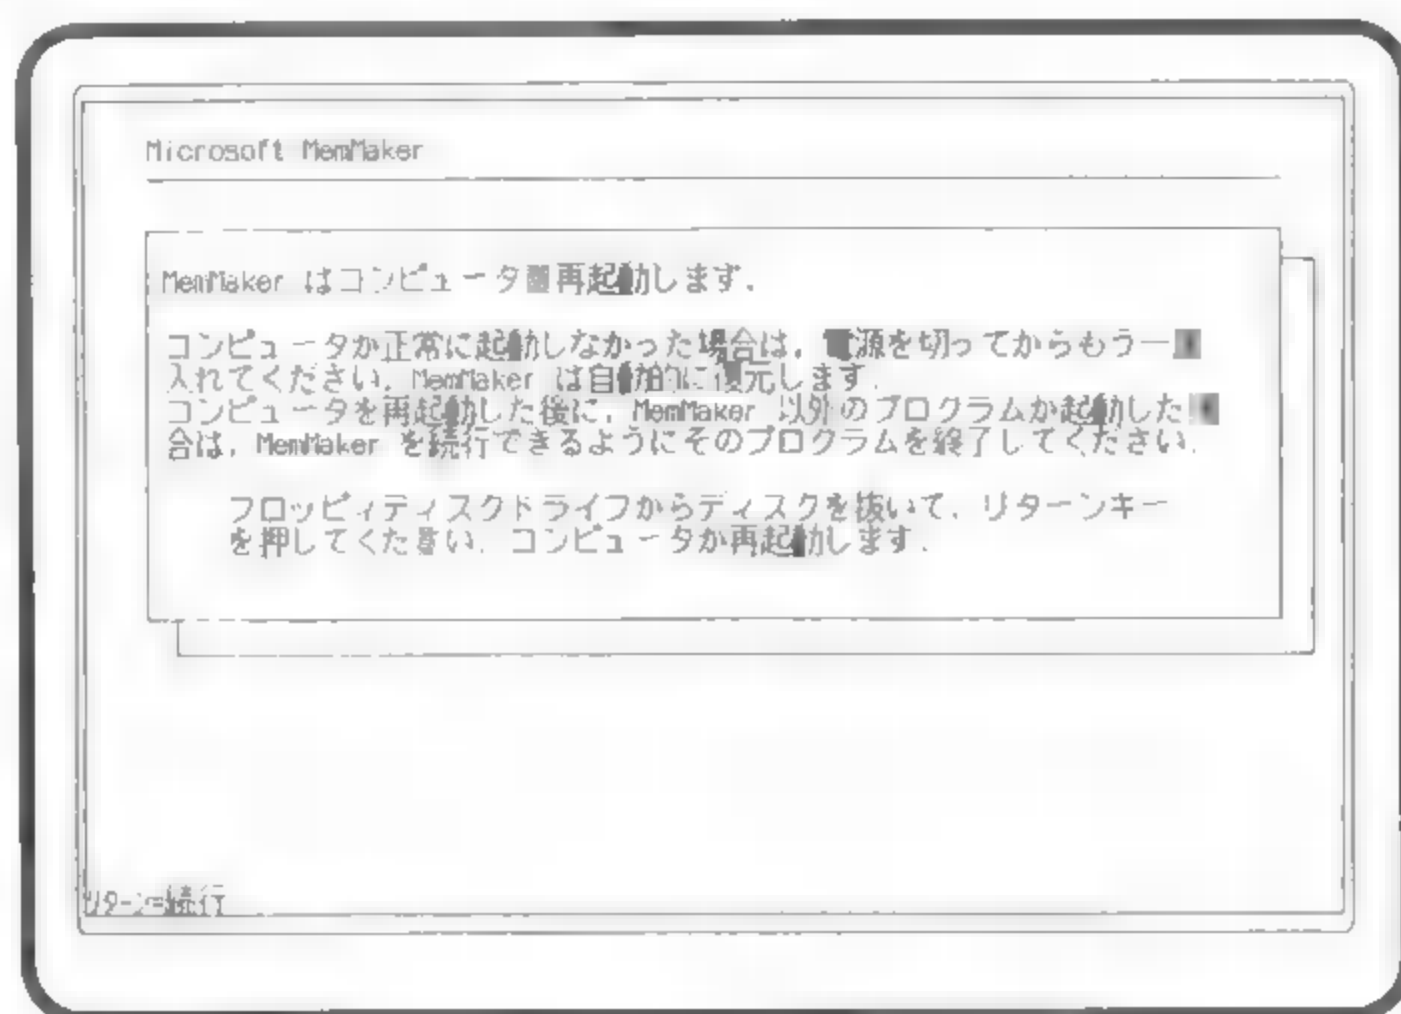 Microsoft MemMaker
MemMaker はコンピュータを再起動します.
コンピュータが正常に起動しなかった場合は, 電源を切ってからもう一度
入れてください. MemMaker は自動的に復元します.
コンピュータを再起動した後に, MemMaker 以外のプログラムが起動した場
合は, MemMaker を続行できるようにそのプログラムを終了してください.
フロッピィディスクドライブからディスクを抜いて, リターンキー
を押してください. コンピュータが再起動します.
リターン=続行